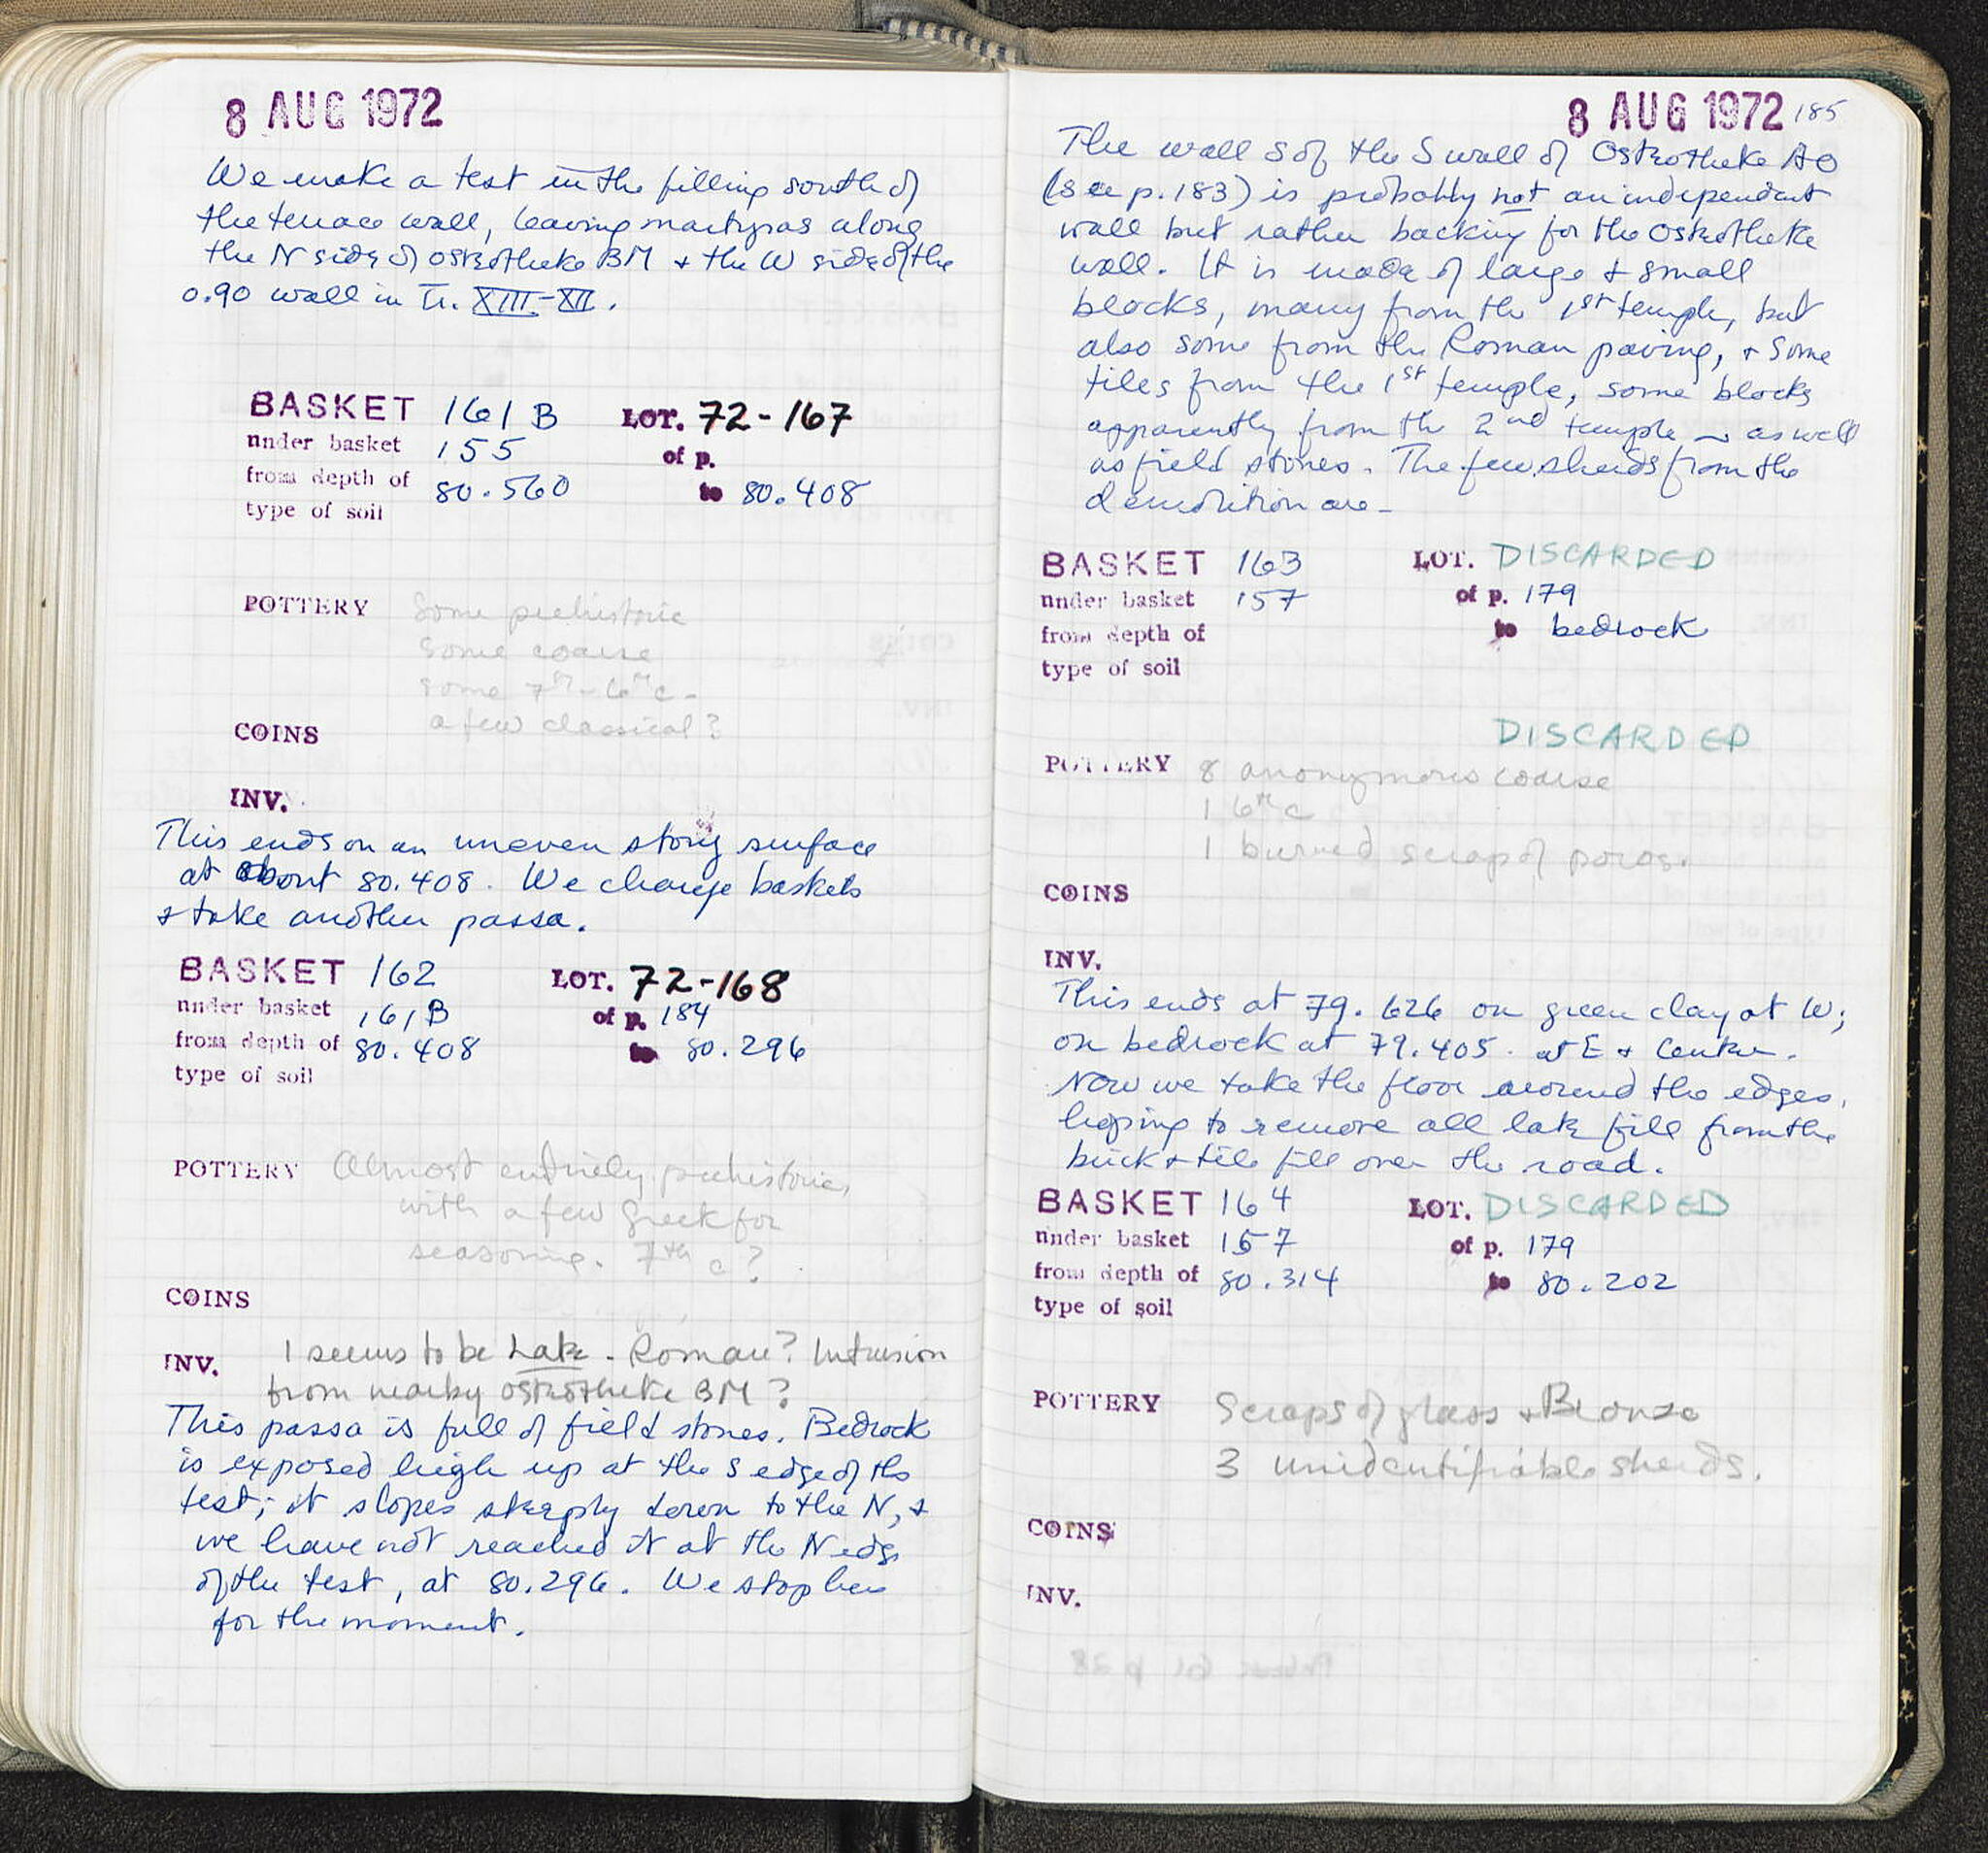 8 AUG 1972
We make a test in the filling south of
the terrace wall, leaving martyras along
the N side of osteotheke BM + the W side of the
0.90 wall in Tr. XIII-XII.
BASKET 161 B LOT. 72-167
under basket 155 of p.
from depth of 80.560 to 80.408
type of soil
POTTERY Some prehistoric
Some coarse
some 7th-6th c-
a few classical?
COINS
INV.
This ends on an uneven stony surface
at about 80.408. We change baskets
+ take another passa.
BASKET 162 LOT. 72-168
under basket 161B of p. 184
from depth of 80.408 to 80.296
type of soil
POTTERY Almost entirely prehistoric,
with a few Greek for
seasoning. 7th c?
COINS
INV. 1 seems to be Late - Roman? Intrusion
from nearby osteotheke BM?
This passa is full of field stones. Bedrock
is exposed high up at the S edge of the
test; it slopes sharply down to the N, +
we have not reached it at the N edge
of the test, at 80.296. We stop here
for the moment.
8 AUG 1972 185
The wall S of the S wall of Osteotheke AO
(see p. 183) is probably not an independent
wall but rather backing for the Osteotheke
wall. It is made of large + small
blocks, many from the 1st temple, but
also some from the Roman paving, + some
tiles from the 1st temple, some blocks
apparently from the 2nd temple – as well
as field stones. The few sherds from the
demolition are –
BASKET 163 LOT. DISCARDED
under basket 157 of p. 179
from depth of to bedrock
type of soil
DISCARDED
POTTERY 8 anonymous coarse
1 6th c
1 burned scrap of poros.
COINS
INV.
This ends at 79.626 on green clay at W;
on bedrock at 79.405. at E + Center.
Now we take the floor around the edges,
hoping to remove all late fill from the
brick + tile fill over the road.
BASKET 164 LOT. DISCARDED
under basket 157 of p. 179
from depth of 80.314 to 80.202
type of soil
POTTERY Scraps of glass + Bronze
3 unidentifiable sherds.
COINS
INV.